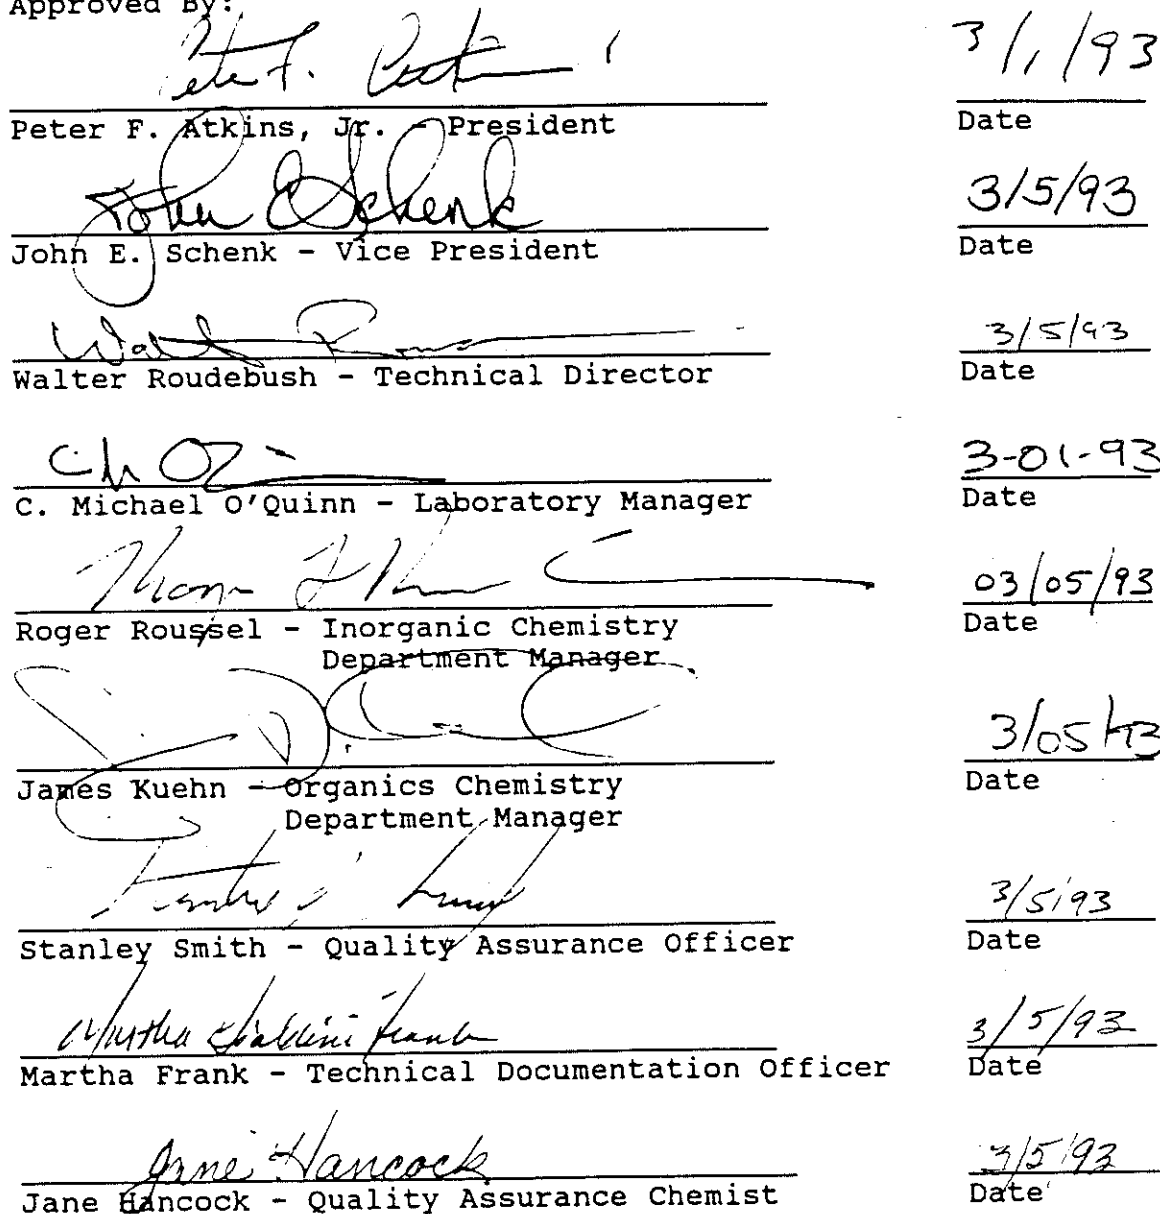 Approved By:
Pete F. Atkins 3/1/93
Peter F. Atkins, Jr. - President Date
John E Schenk 3/5/93
John E. Schenk - Vice President Date
Walt 3/5/93
Walter Roudebush - Technical Director Date
3-01-93
C. Michael O'Quinn - Laboratory Manager Date
03/05/93
Roger Roussel - Inorganic Chemistry Date
Department Manager
3/05/93
James Kuehn - Organics Chemistry Date
Department Manager
3/5/93
Stanley Smith - Quality Assurance Officer Date
Martha Frank 3/5/93
Martha Frank - Technical Documentation Officer Date
Jane Hancock 3/5/93
Jane Hancock - Quality Assurance Chemist Date